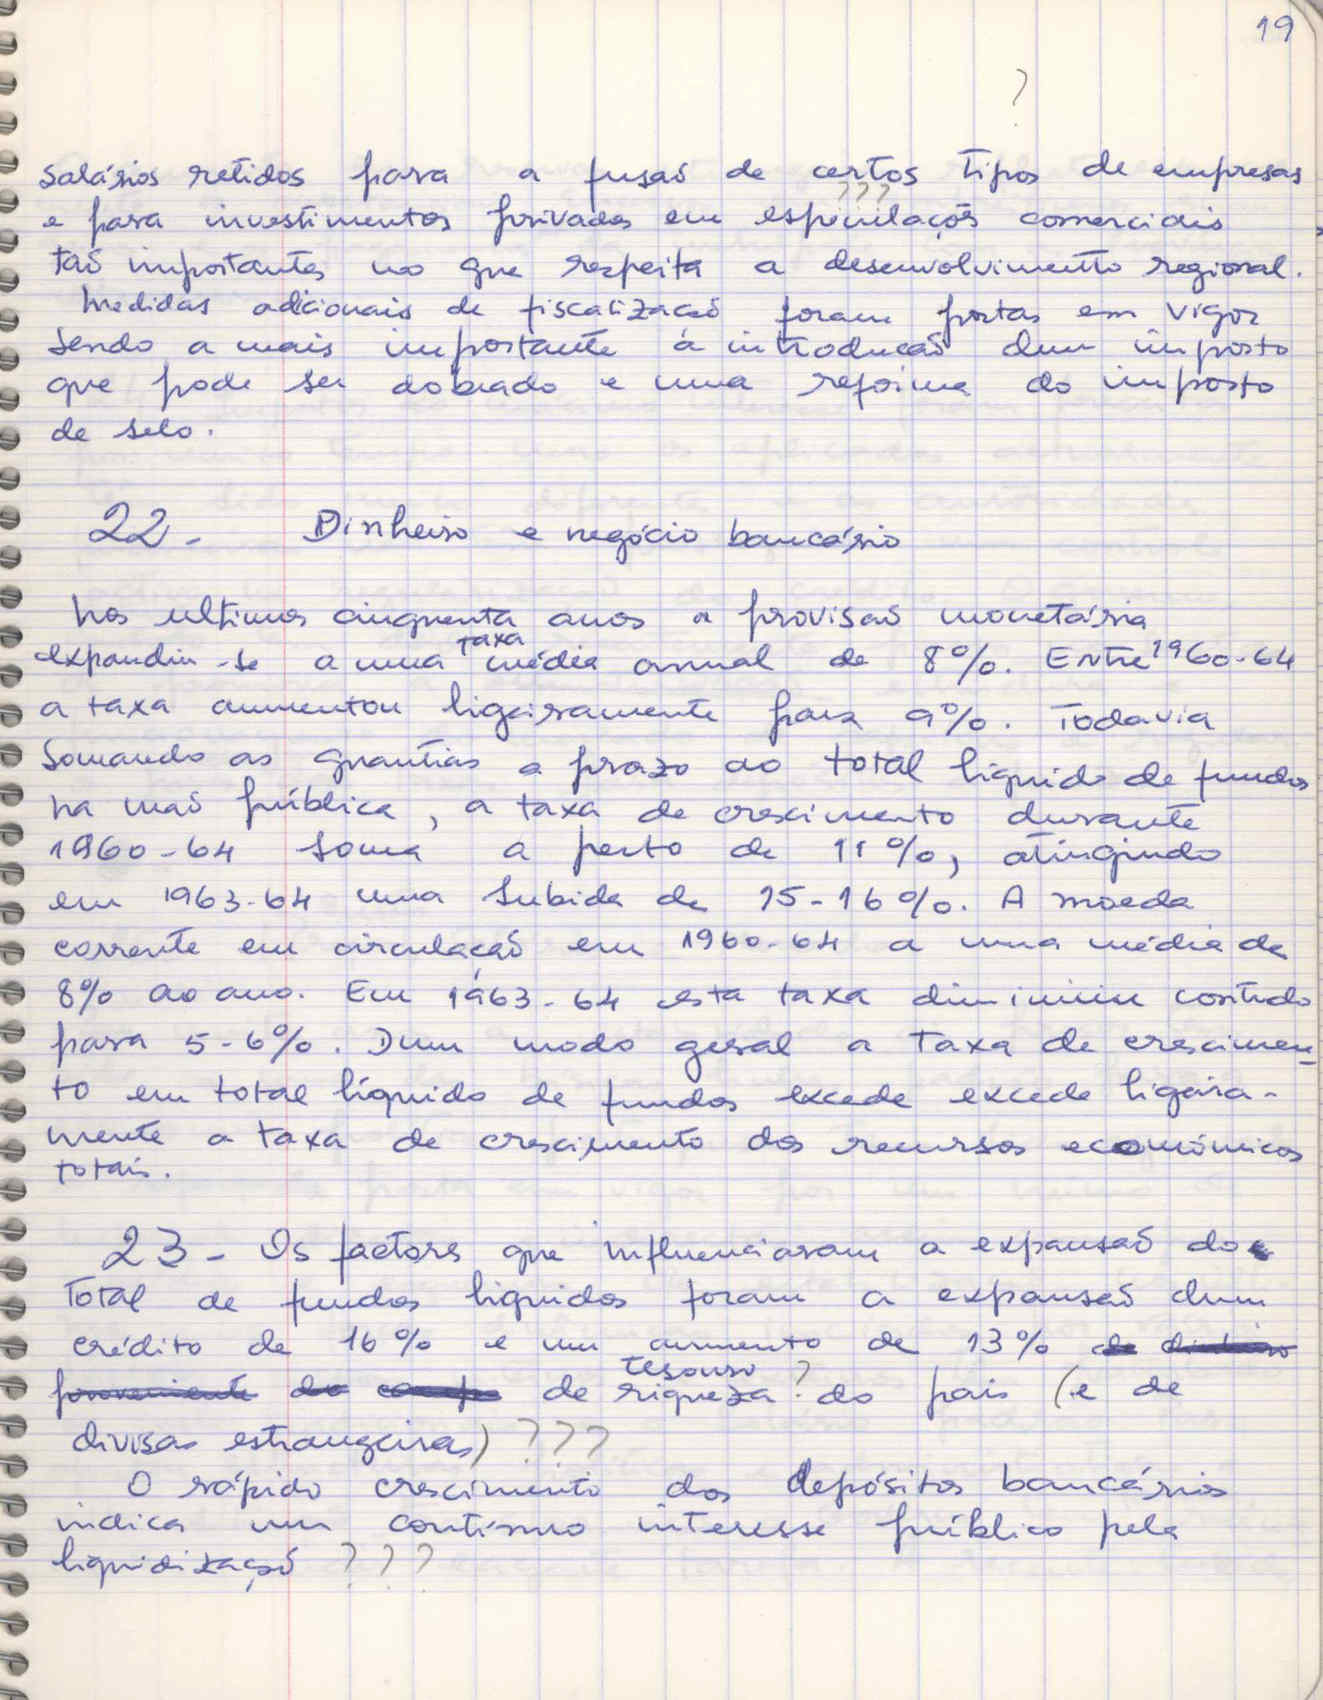 19
?
salários retidos para a fusaõ de certos tipos de empresas
???
e para investimentos privados em espculações comerciais
taõ importantes no que respeita a desenvolvimento regional.
Medidas adicionais de fiscalizacaõ foram postas em vigor
sendo a mais importante à introducaõ dum imposto
que pode ser dobrado e uma reforma do imposto
de selo.
22- Dinheiro e negócio bancário
Nos ultimos cinquenta anos a provisaõ monetária
taxa
expandiu-se a uma média annual de 8%. Entre 1960-64
a taxa aumentou ligeiramente para 9%. Todavia
somando as quantias a prazo ao total liquido de fundos
na maõ pública, a taxa de crescimento durante
1960-64 soma a perto de 11%, atingindo
em 1963-64 uma subida de 15-16%. A moeda
corrente em circulaçaõ em 1960-64 a uma média de
8% ao ano. Em 1963-64 esta taxa diminuiu contudo
para 5-6%. Dum modo geral a taxa de crescimen-
to em total líquido de fundos excede excede ligeira-
mente a taxa de crescimento dos recursos económicos
totais.
23- Os factores que influenciaram a expansaõ do
total de fundos liquidos foram a expansaõ dum
crédito de 16% e um aumento de 13% de dinheiro
tesouro
proveniente do campo de riqueza? do pais (e de
divisas estrangeiras) ???
O rápido crescimento dos depósitos bancários
indica um contínuo interesse público pela
liquidizaçaõ ???